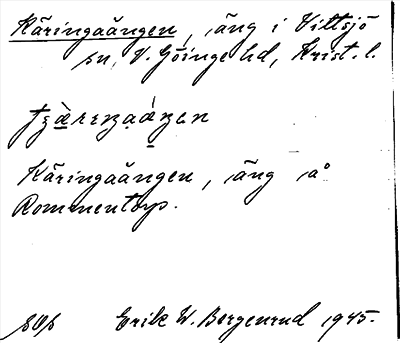 Käringaängen, äng i Vittsjö
sn, V. Göinge hd, Krist. l.
Käringaängen, äng å
Rommentorp.
Erik W. Bergenrud 1945.